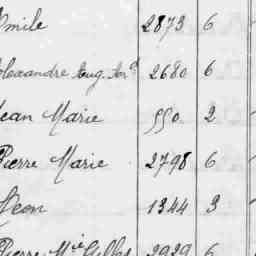 Emile 2873 6
Alexandre Aug. And 2680 6
Jean Marie 550 2
Pierre Marie 2798 6
Léon 1344 3
Pierre Mie Gilles 2929 6